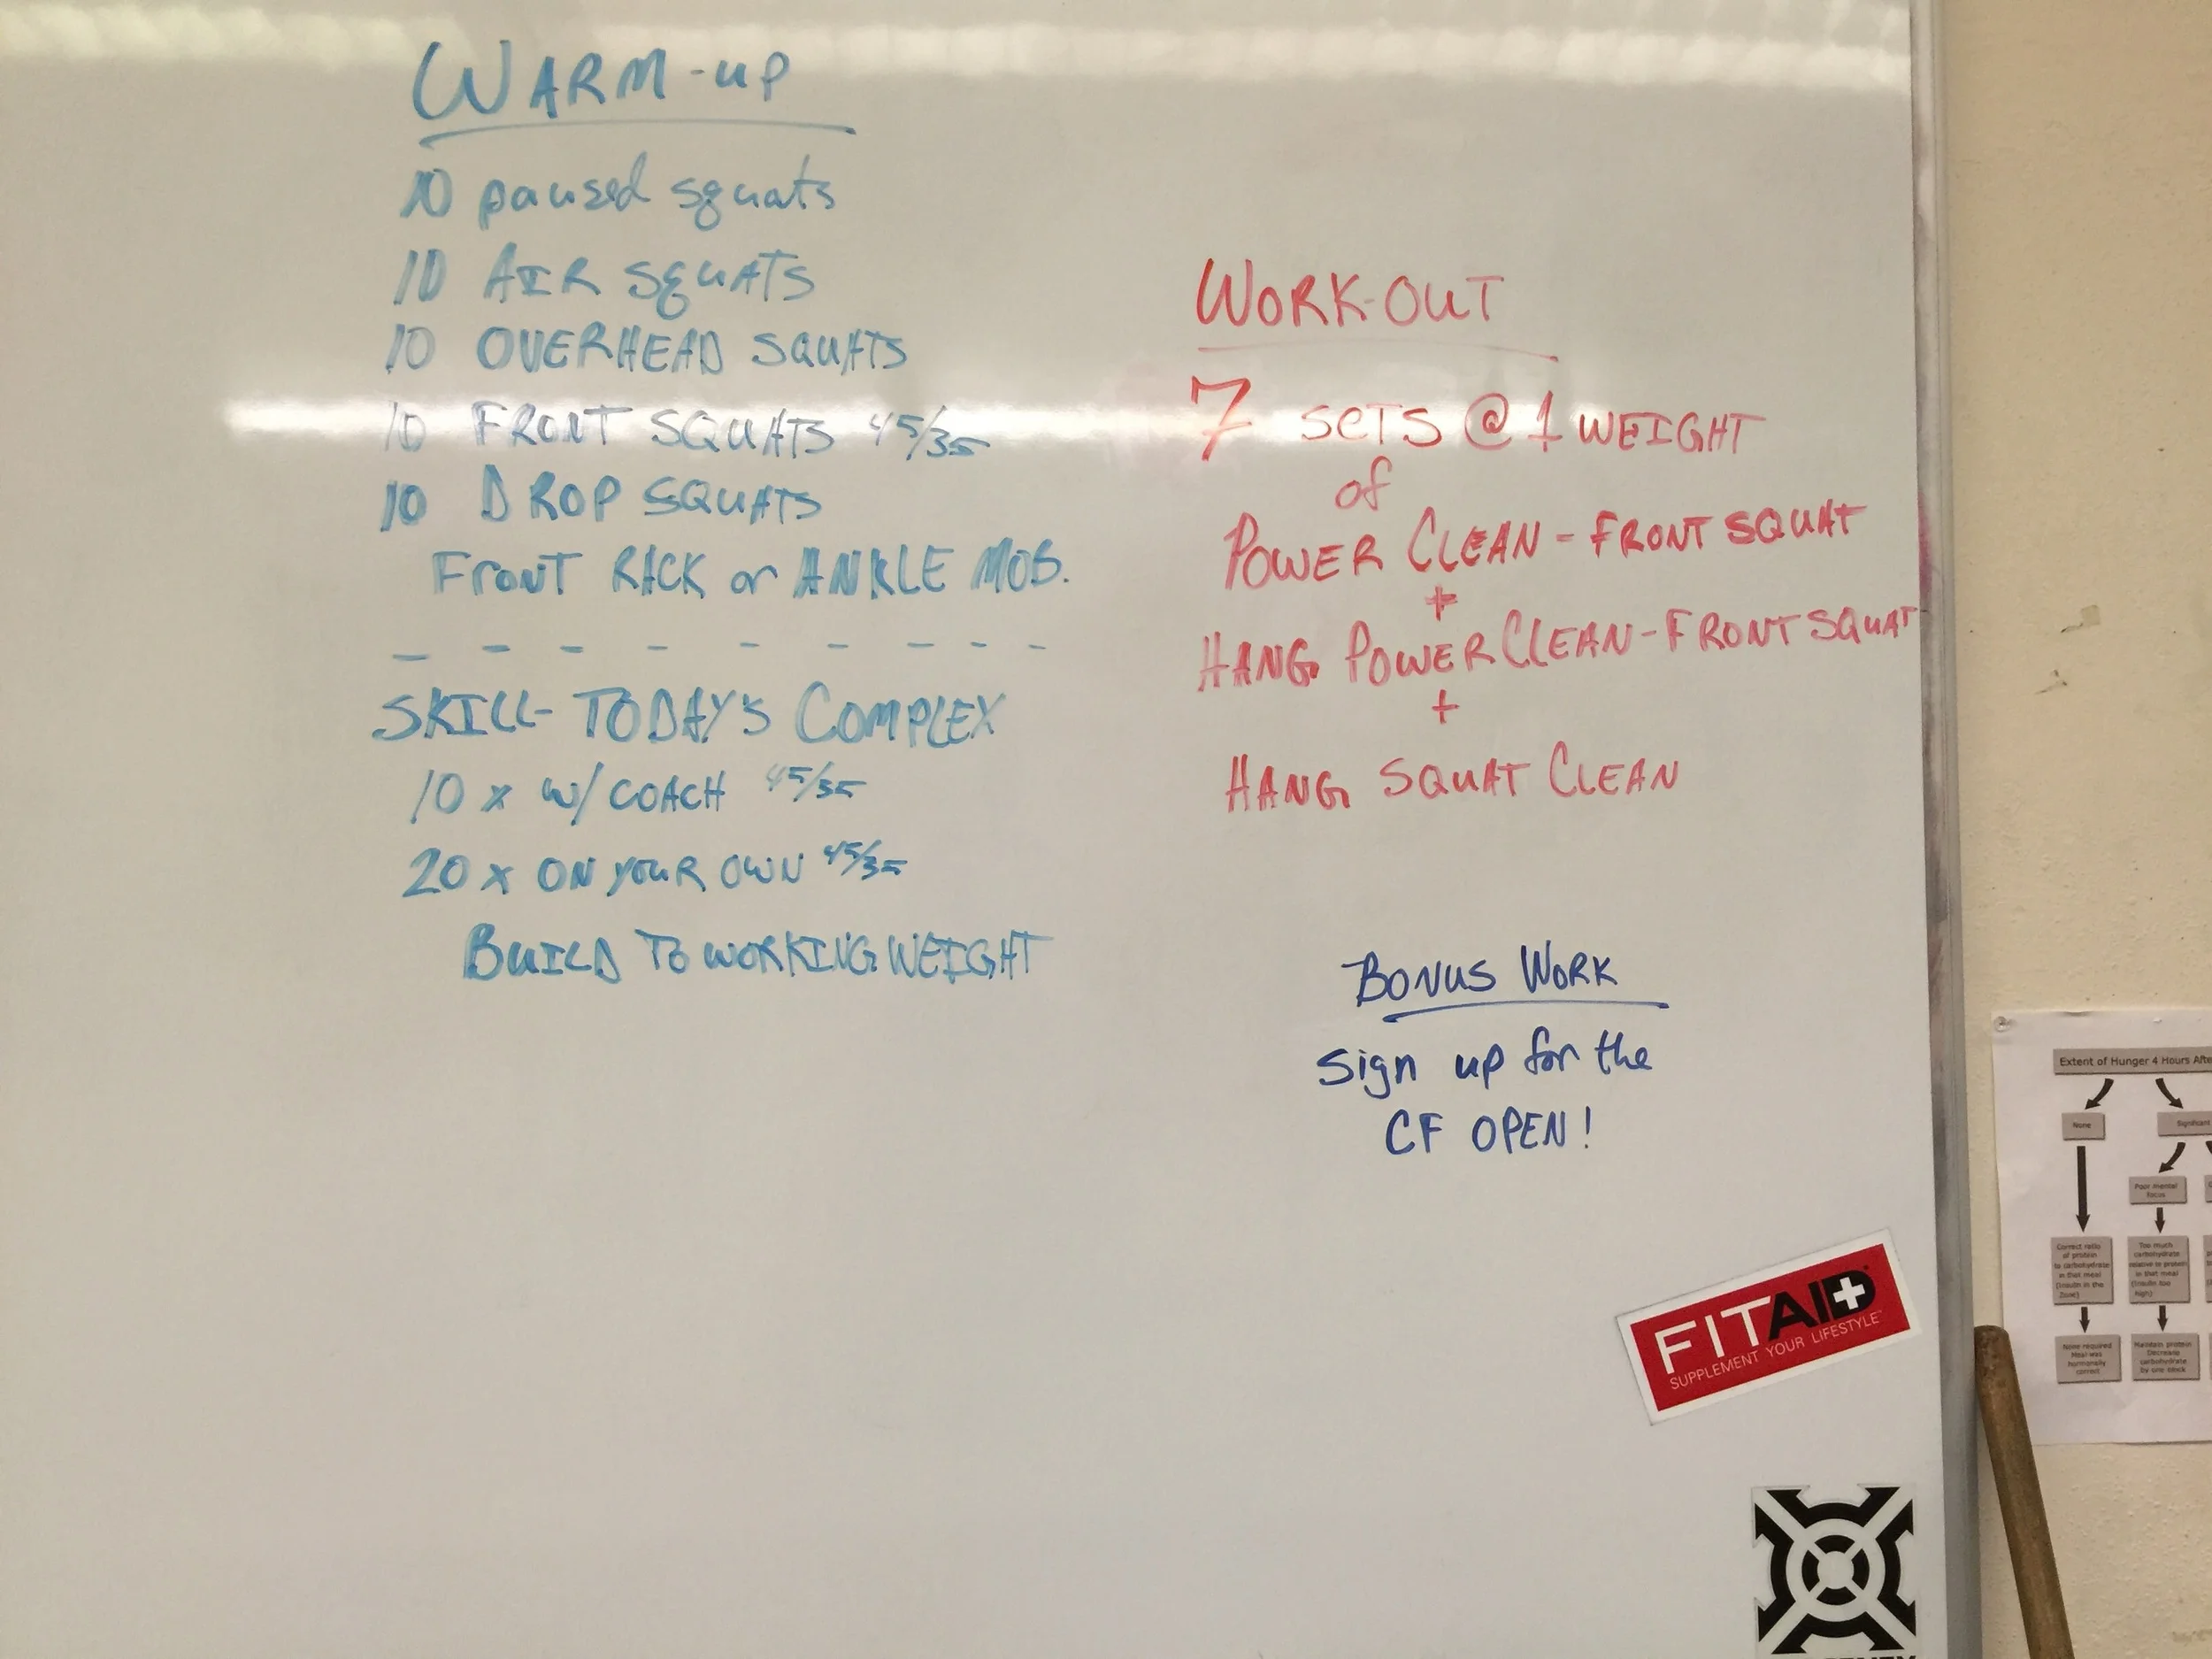 WARM-up
10 paused squats
10 AIR SQUATS
10 OVERHEAD SQUATS
10 FRONT SQUATS 45/35
10 DROP SQUATS
FRONT RACK or ANKLE MOB.
- - - - - - - - -
SKILL- TODAY'S COMPLEX
10 x w/ COACH 45/35
20 x ON YOUR OWN 45/35
BUILD TO WORKING WEIGHT
WORK-OUT
7 SETS @ 1 WEIGHT
of
POWER CLEAN - FRONT SQUAT
+
HANG POWER CLEAN - FRONT SQUAT
+
HANG SQUAT CLEAN
BONUS WORK
Sign up for the
CF OPEN!
FITAID
SUPPLEMENT YOUR LIFESTYLE™
Extent of Hunger 4 Hours Afte
None
Significant
Poor mental
focus
Correct ratio
of protein
to carbohydrate
in that meal
(Insulin in the
Zone)
Too much
carbohydrate
relative to protein
in that meal
(Insulin too
high)
None required
Meal was
hormonally
correct
Maintain protein
Decrease
carbohydrate
by one block